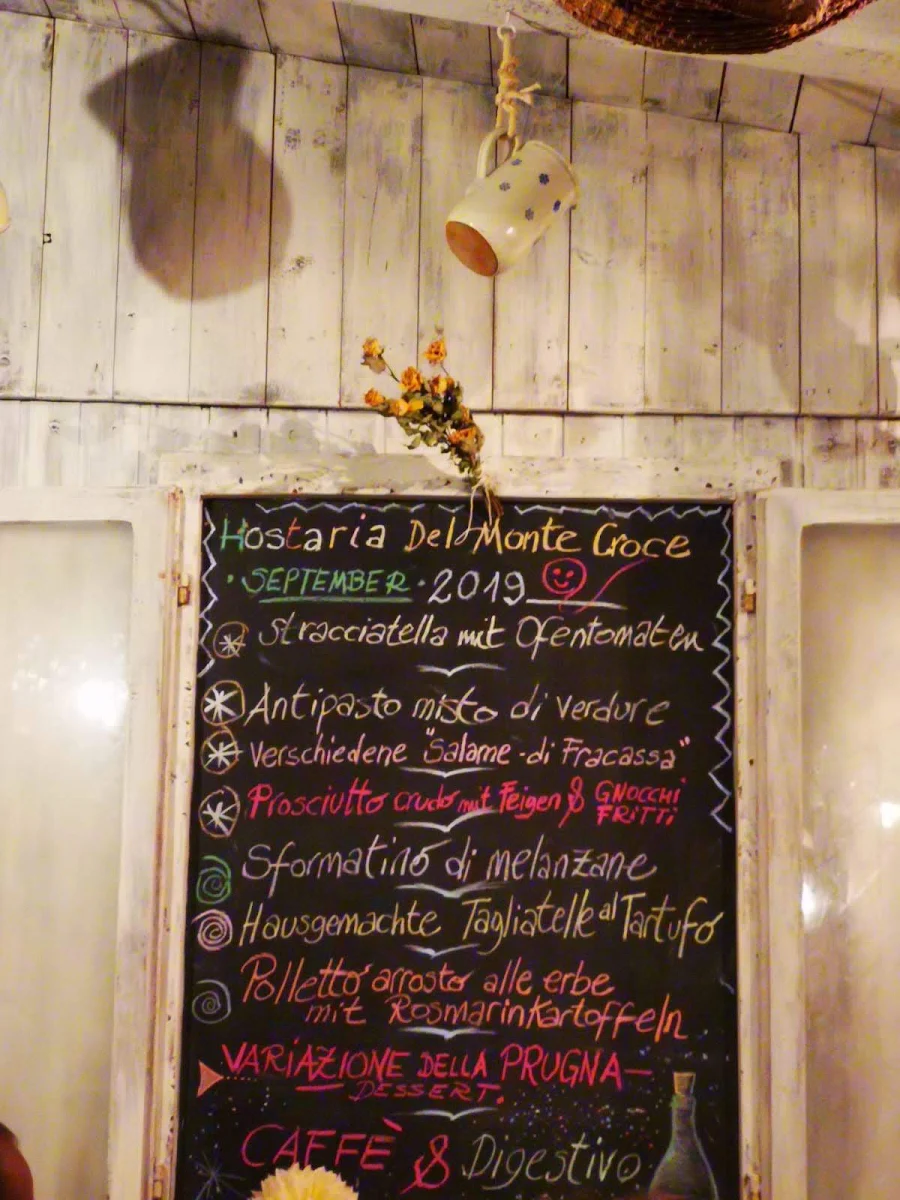 Hostaria Del Monte Croce
· SEPTEMBER · 2019
Stracciatella mit Ofentomaten
Antipasto misto di verdure
verschiedene "Salame - di Fracassa"
Prosciutto crudo mit Feigen & GNOCCHI
FRiTTi
Sformatino di melanzane
Hausgemachte Tagliatelle al Tartufo
Polletto arrosto alle erbe
mit Rosmarinkartoffeln
VARiAZiONE DELLA PRUGNA—
DESSERT.
CAFFÈ & Digestivo